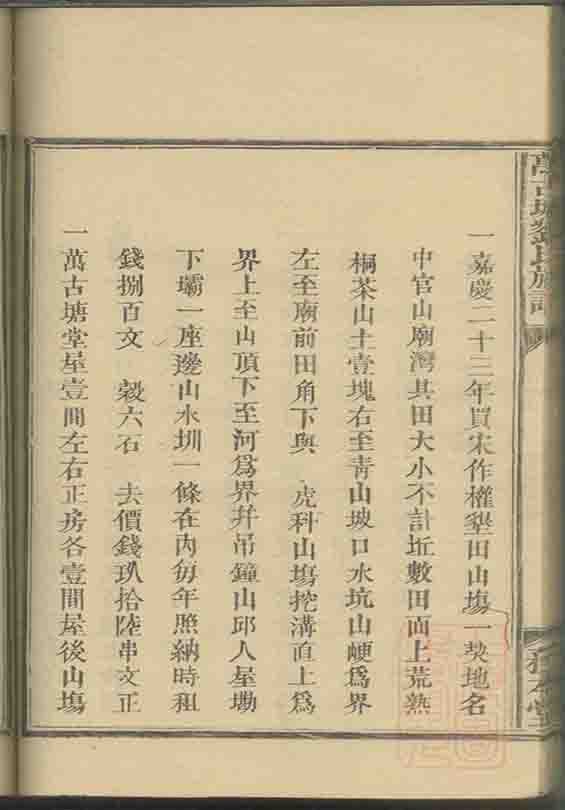 萬古塘劉氏族譜
一嘉慶二十三年買宋作權墾田山塲一契地名
中官山廟灣其田大小不計坵數田面上荒熟
桐茶山土壹塊右至靑山坡口水坑山峺爲界
左至廟前田角下與 虎科山塲挖溝直上爲
界上至山頂下至河爲界幷吊鐘山邱人屋塝
下壩一座邊山水圳一條在內每年照納時租
錢捌百文 穀六石 去價錢玖拾陸串文正
一萬古塘堂屋壹間左右正房各壹間屋後山塲